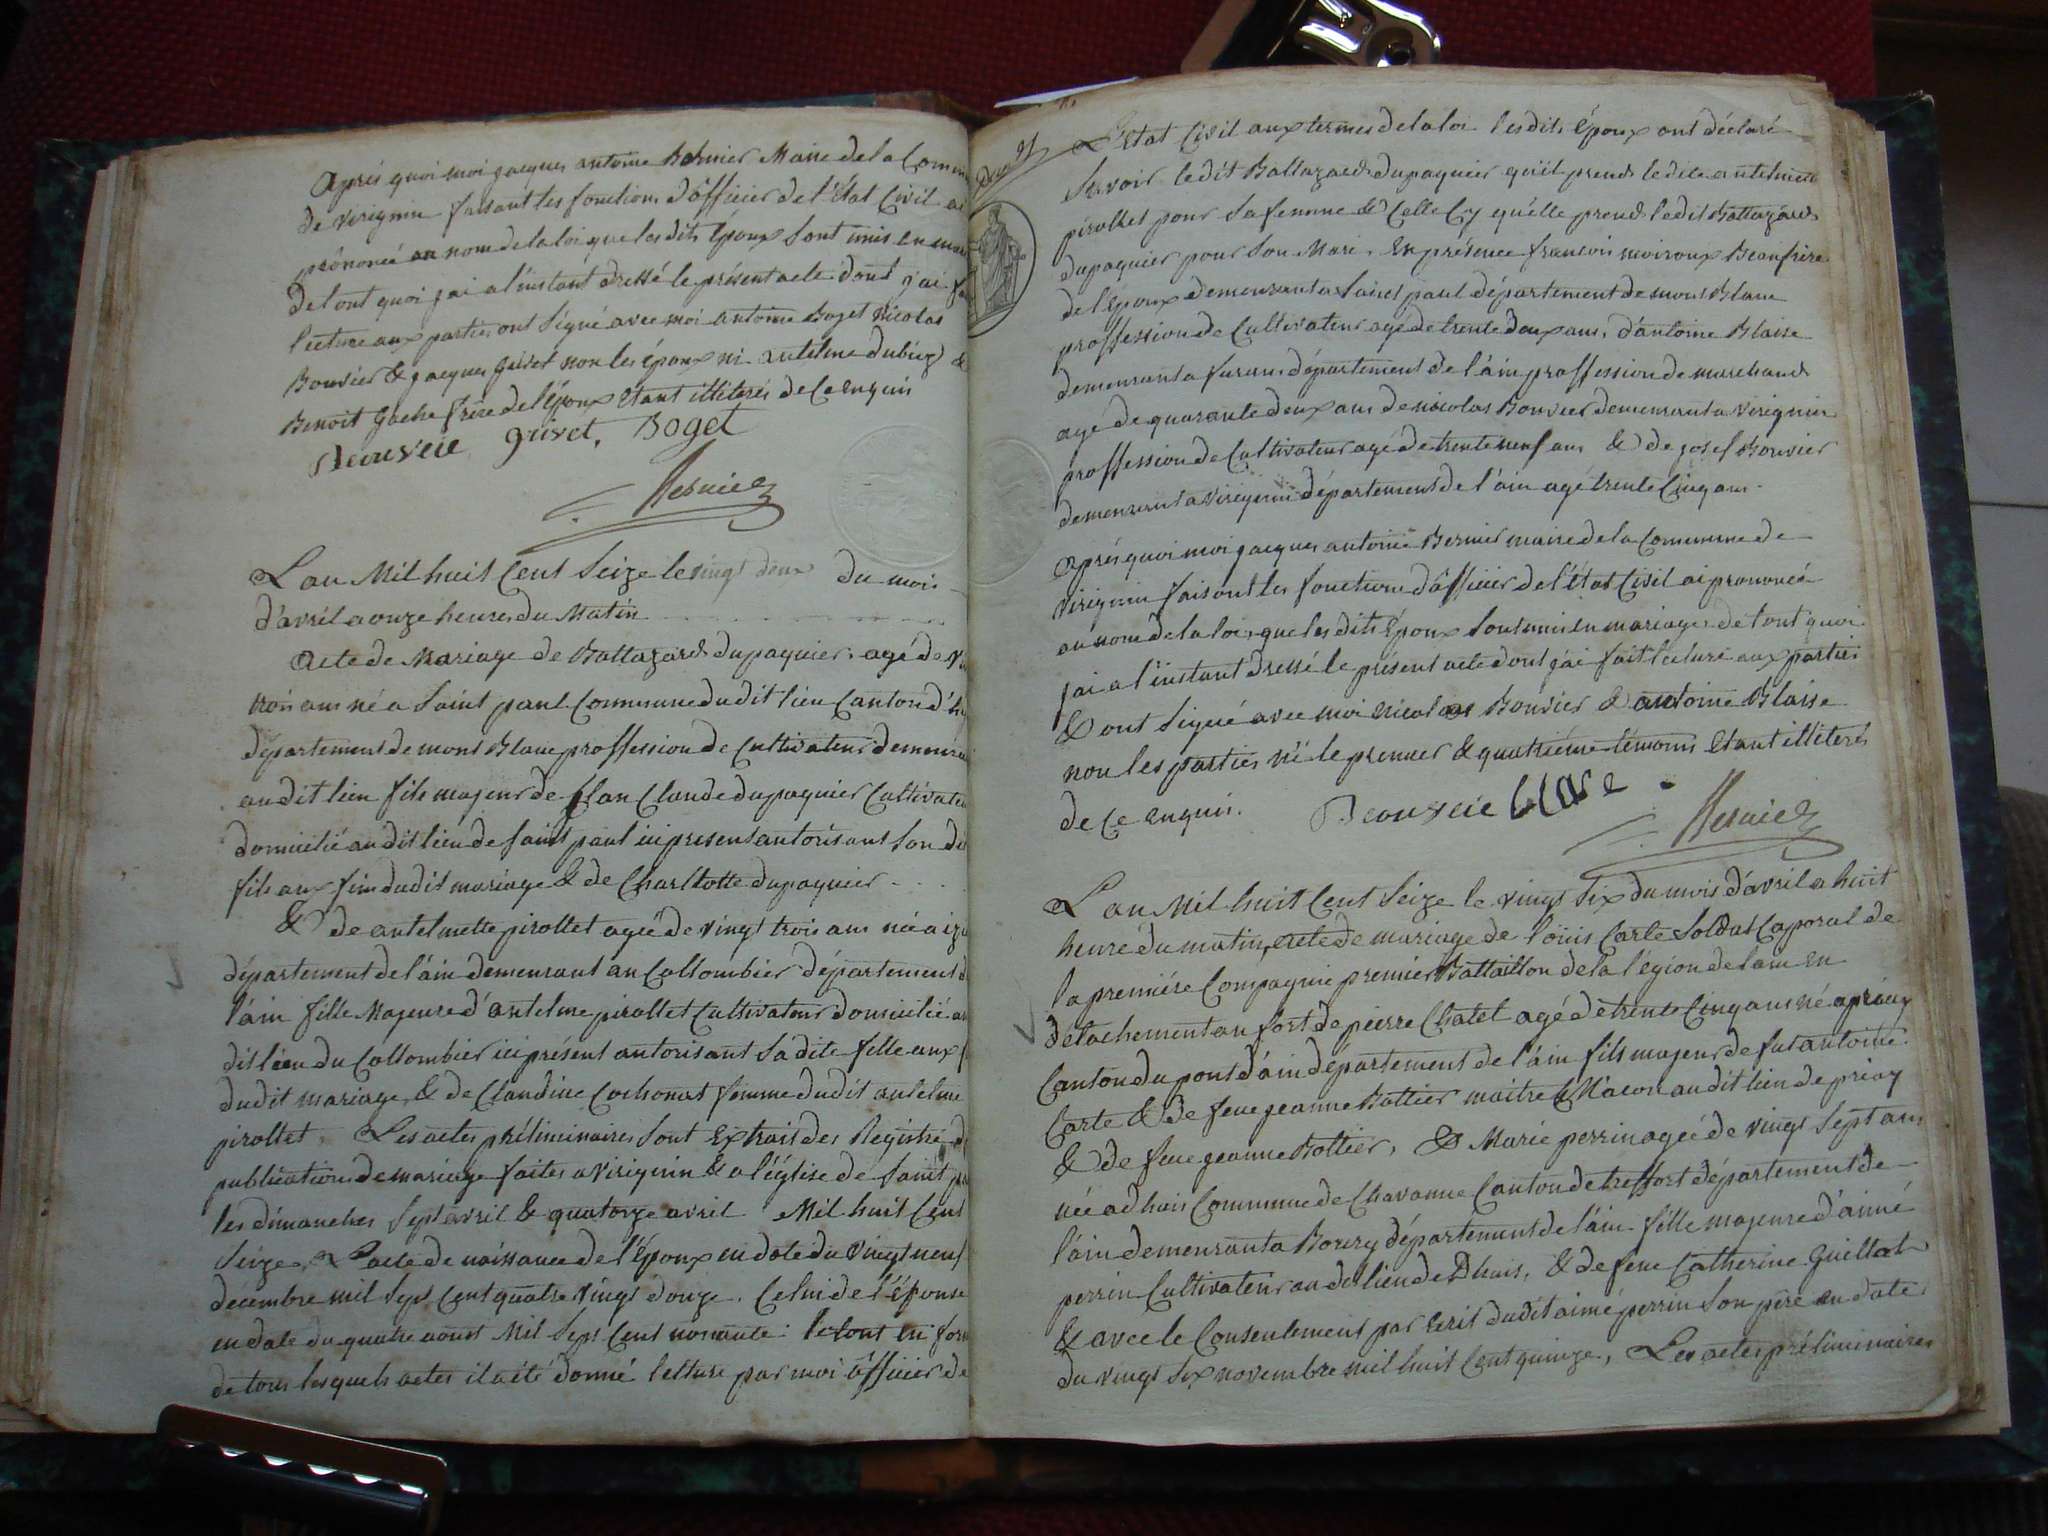 Après quoi moi jacques antoine Bernier Maire de la Comm
de virignin faisant les fonctions d'officier de l'Etat Civil ai
prononcé au nom de la loi que les dits Epoux sont unis en mar
de tout quoi j'ai a l'instant dressé le présent acte dont j'ai
lecture aux parties ont signé avec moi antoine Boget Nicolas
Bouvier & jacques grivet non les époux ni antelme dubiez &
Benoit gache frère de l'époux Etant illiterés de ce enquis
Beouveie grivet. Boget
Bernier
L'an Mil huit Cent Seize le vingt deux du mois
d'avril a onze heures du Matin
Acte de Mariage de Baltazard dupaquier agé de
trois ans né a Saint paul Commune du dit lieu Canton d'
département de mont Blanc proffession de Cultivateur demeura
au dit lieu fils majeur de Claude dupaquier Cultivate
domicilié au dit lieu de Saint paul ici present autorisant Son di
fils aux fins du dit mariage & de Charllotte dupaquier
& de antelmette pirollet ageé de vingt trois ans née a
département de l'ain demeurant au Collombier département d
l'ain fille Majeure d'antelme pirollet Cultivateur domicilié au
dit lieu du Collombier ici présent autorisant Sa dite fille aux
du dit mariage, & de Claudine Cochonat femme du dit antelme
pirollet. Les actes préliminaires sont Extrait des Registre d
publications de mariage faites a virignin & a l'église de Saint p
les dimanches Sept avril & quatorze avril Mil huit Cent
Seize, L'acte de naissance de l'époux en date du vingt neuf
décembre mil Sept Cent quatre vingt douze. Celui de l'épouse
en date du quatre aoust Mil Sept Cent nonante. le tout en form
de tous lesquels actes il a été donné lecture par moi officier de
L'Etat Civil aux termes de la loi les dits époux ont déclaré
Savoir le dit Baltazard dupaquier qu'il prend la dite antelmette
pirollet pour Sa femme & Celle Cy qu'elle prend le dit Baltazard
dupaquier pour Son Mari, En présence francois noiroux Beaufrère
de l'époux demeurant a Saint paul département de mont Blanc
proffession de Cultivateur agé de trente deux ans, d'antoine Blaise
demeurant a furans département de l'ain proffession de marchand
agé de quarante deux ans de nicolas Bouvier demeurant a virignin
proffession de Cultivateur agé de trente neuf ans & de josef Bouvier
demeurant a virignin département de l'ain agé trente Cinq ans.
Après quoi moi jacques antoine Bernier maire de la Commune de
virignin faisant les fonctions d'officier de l'état Civil ai prononcé
au nom de la loi, que les dits Epoux Sont unis en mariage de tout quoi
j'ai a l'instant dressé le présent acte dont j'ai fait lecture aux parties
& ont Signé avec moi nicolas Bouvier & antoine Blaise
non les parties ni le premier & quatrième témoins Etant illiterés
de Ce enquis. Beouveie
Bernier
L'an Mil huit Cent Seize le vingt Six du mois d'avril a huit
heure du matin, acte de mariage de loüis Carte Soldat Caporal de
la première Compagnie premier Battaillon de la légion de lain en
detachement au fort de pierre Chatel agé de trente Cinq ans né a priay
Canton du pont d'ain département de l'ain fils majeur de fut antoine
Carte & de feue jeanne Bottier maitre Macon au dit lieu de priay
& de feue jeanne Bottier, & Marie perrin ageé de vingt Sept ans
née a dhuis Commune de Chavanne Canton de treffort département de
l'ain demeurant a Bourg département de l'ain fille majeure d'aimé
perrin Cultivateur au dit lieu de Dhuis, & de feue Catherine Guillot
& avec le Consentement par écrit du dit aimé perrin Son père en date
du vingt Six novembre mil huit Cent quinze, Les actes préliminaires